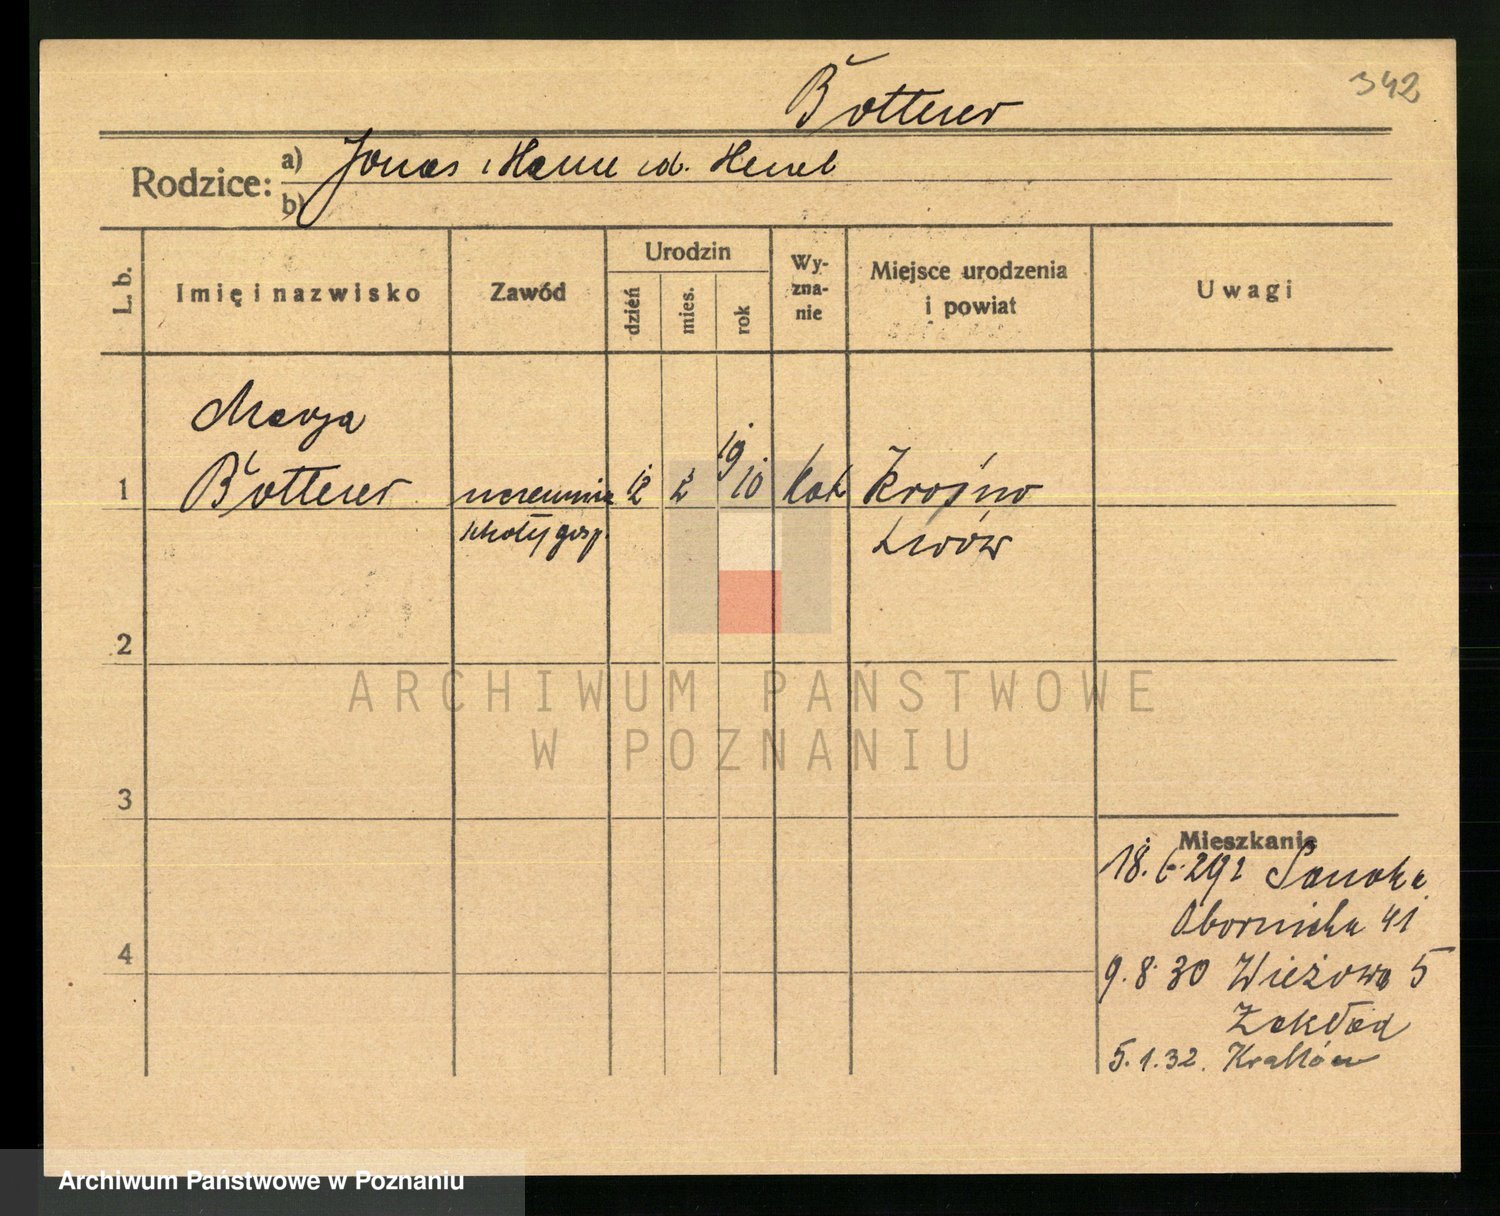 342
Botterer
Rodzice:
a) Jonas i
b)
L. b.
Imię i nazwisko
Zawód
Urodzin
dzień
mies.
rok
Wy-
zna-
nie
Miejsce urodzenia
i powiat
Uwagi
Marja
1 Botterer uczennica 12 2 1910 kat Krosno
szkoły gosp. Lwów
2
3
4
Mieszkanie
18. 6. 29 z Sanoka
Obornicka 41
9. 8. 30 Wieżowa 5
Zakład
5. 1. 32. Kraków
ARCHIWUM PAŃSTWOWE
W POZNANIU
Archiwum Państwowe w Poznaniu